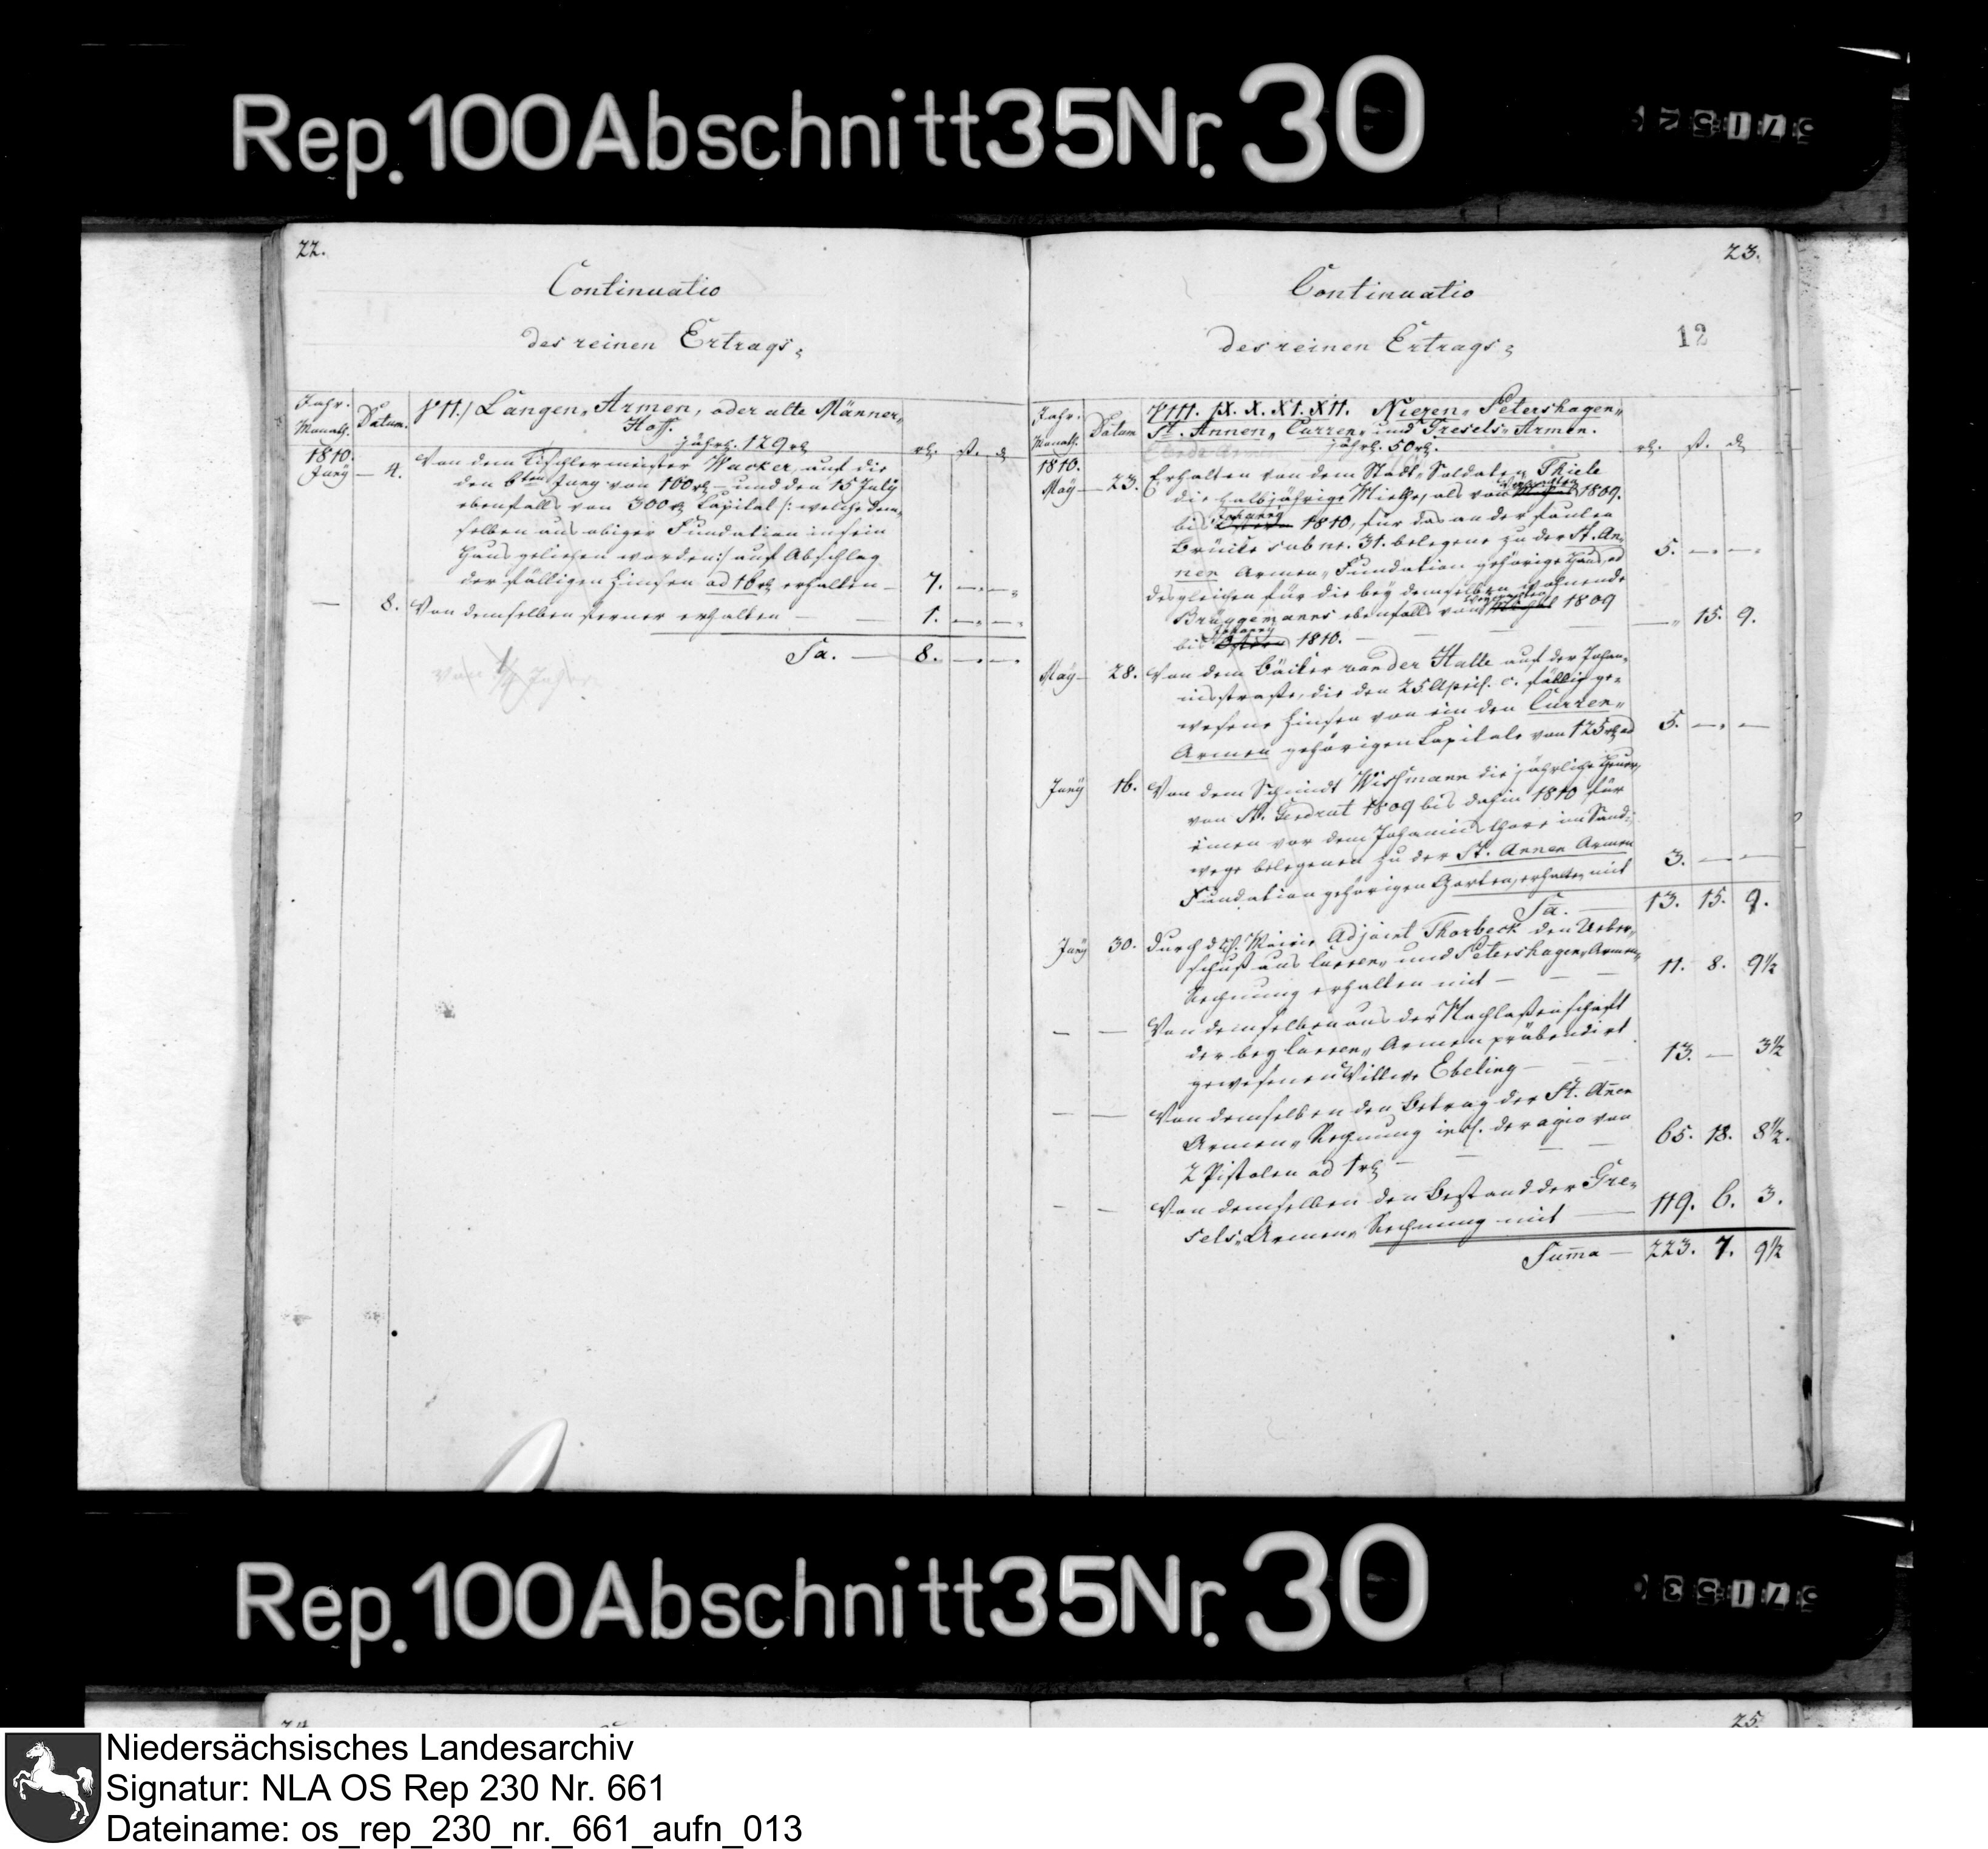 Rep. 100 Abschnitt 35 Nr. 30
22.
Continuatio
des reinen Ertrags
Jahr. Monath. Datum.
VII.) Langen, Armen, oder alte Männer-
Hoff.
jährl. 129 rℓ
rℓ. ß. d
1810.
Juny — 4. Von dem Tischlermeister Wacker, auf die
den 6ten Juny von 100 rℓ — und den 15 July
ebenfalls von 300 rℓ Capital /: welche dem-
selben aus obiger Fundation in sein
Haus geliehen worden :/ auf Abschlag
der fälligen Zinsen ad 16 rℓ erhalten — 7. — —
— 8. Von demselben ferner erhalten — — 1. — —
Sa. — 8. — —
von 1/4 Jahr
23.
Continuatio
des reinen Ertrags
12
Jahr. Monath. Datum
VIII. IX. X. XI. XII. Niezen, Petershagen,
St. Annen, Curren, und Gresels, Armen.
jährl. 50 rℓ.
rℓ. ß. d
1810.
May — 23. Erhalten von dem Stadt-Soldaten Thiele
die halbjährige Miethe, als von 1809.
bis Johanny 1810, für das an der faulen
Brücke sub nr. 31. belegene zu der St. An-
nen Armen, Fundation gehörige Haus, ad 5. — —
desgleichen für die bey demselben wohnende
Brüggemanns ebenfalls von 1809
bis Johanny 1810. — — — — 15. 9.
May — 28. Von dem Bäcker von der Halle auf der Johan-
nisstraße, die den 25 April. c. fällig ge-
wesene Zinsen von ein den Curren,
Armen gehörigen Capitale von 125 rℓ ad 5. — —
Juny 16. Von dem Schmidt Wissmann die jährliche Heuer,
von St. Gedrut 1809 bis dahin 1810 für
einen vor dem Johannis thore im Sand-
wege belegenen zu der St. Annen Armen
Fundation gehörigen Garten, erhalten mit 3. — —
Sa. — 13. 15. 9.
Juny 30. Durch d. H. Mairie Adjoint Thorbeck den Ueber-
schuß aus Curren, und Petershagen, Armen,
Rechnung erhalten mit — — — 11. 8. 9½
— — Von demselben aus der Nachlaßenschaft
der bey Curren, Armen präbendirt
gewesenen Wittwe Ebeling — — — 13. — 3½
— — Von demselben den Betrag der St. Añen
Armen, Rechnung incl. der agio von
2 Pistolen ad 1 rℓ — — — — 65. 18. 8½.
— — Von demselben den Bestand der Gre-
sels, Armen, Rechnung mit — 119. 6. 3.
Sum̃a — 223. 7. 9½
Rep. 100 Abschnitt 35 Nr. 30
25.
Niedersächsisches Landesarchiv
Signatur: NLA OS Rep 230 Nr. 661
Dateiname: os_rep_230_nr._661_aufn_013